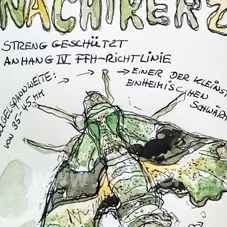 NACHTKERZ
STRENG GESCHÜTZT
ANHANG IV FFH-RICHTLINIE
EINER DER KLEINST
EINHEIMISCHEN
SCHWÄRM
FLÜGELSPANNWEITE:
VON 35-45 MM